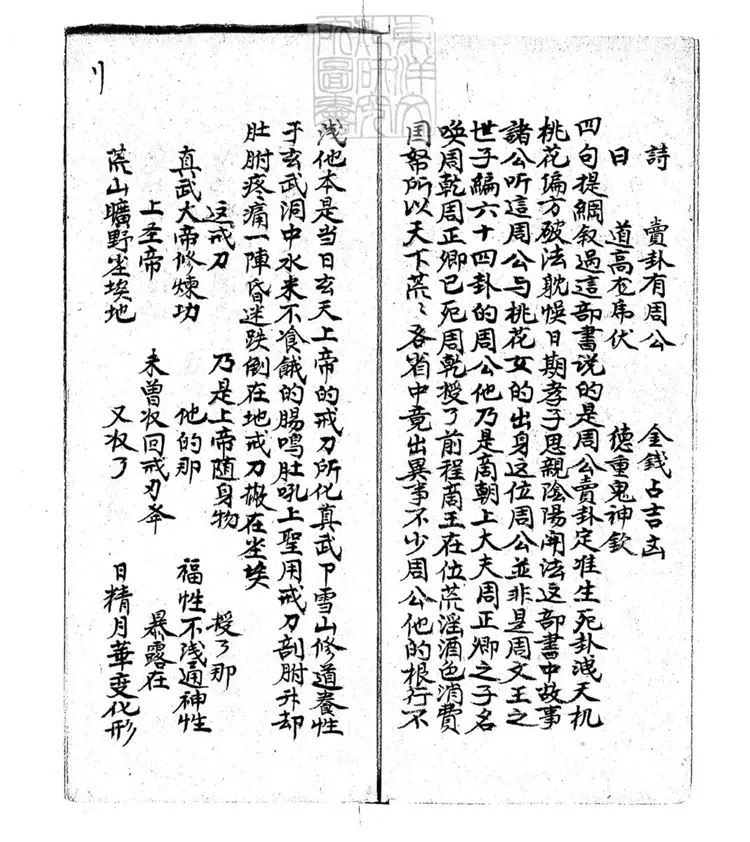 詩 賣卦有周公 金錢占吉凶
曰 道高龙席伏 德重鬼神欽
四句提綱叙過這部書说的是周公賣卦定准生死卦浅天机
桃花偏方破法躭悞日期孝子思親陰陽鬧法这部書中故事
諸公听這周公与桃花女的出身这位周公並非是周文王之
世子編六十四卦的周公他乃是商朝上大夫周正卿之子名
唤周乾周正卿已死周乾授了前程商王在位荒淫酒色消費
国帑所以天下荒〻各省中竟出異事不少周公他的根行不
浅他本是当日玄天上帝的戒刀所化真武下雪山修道養性
于玄武洞中水米不飡餓的腸鸣肚吼上聖用戒刀剖肘去却
肚肘疼痛一陣昏迷跌倒在地戒刀撇在尘埃
这戒刀 乃是上帝随身物 授了那
真武大帝修煉功 他的那 福性不浅通神性
上圣帝 未曾收回戒刀奉 暴露在
荒山曠野尘埃地 又收了 日精月華变化形